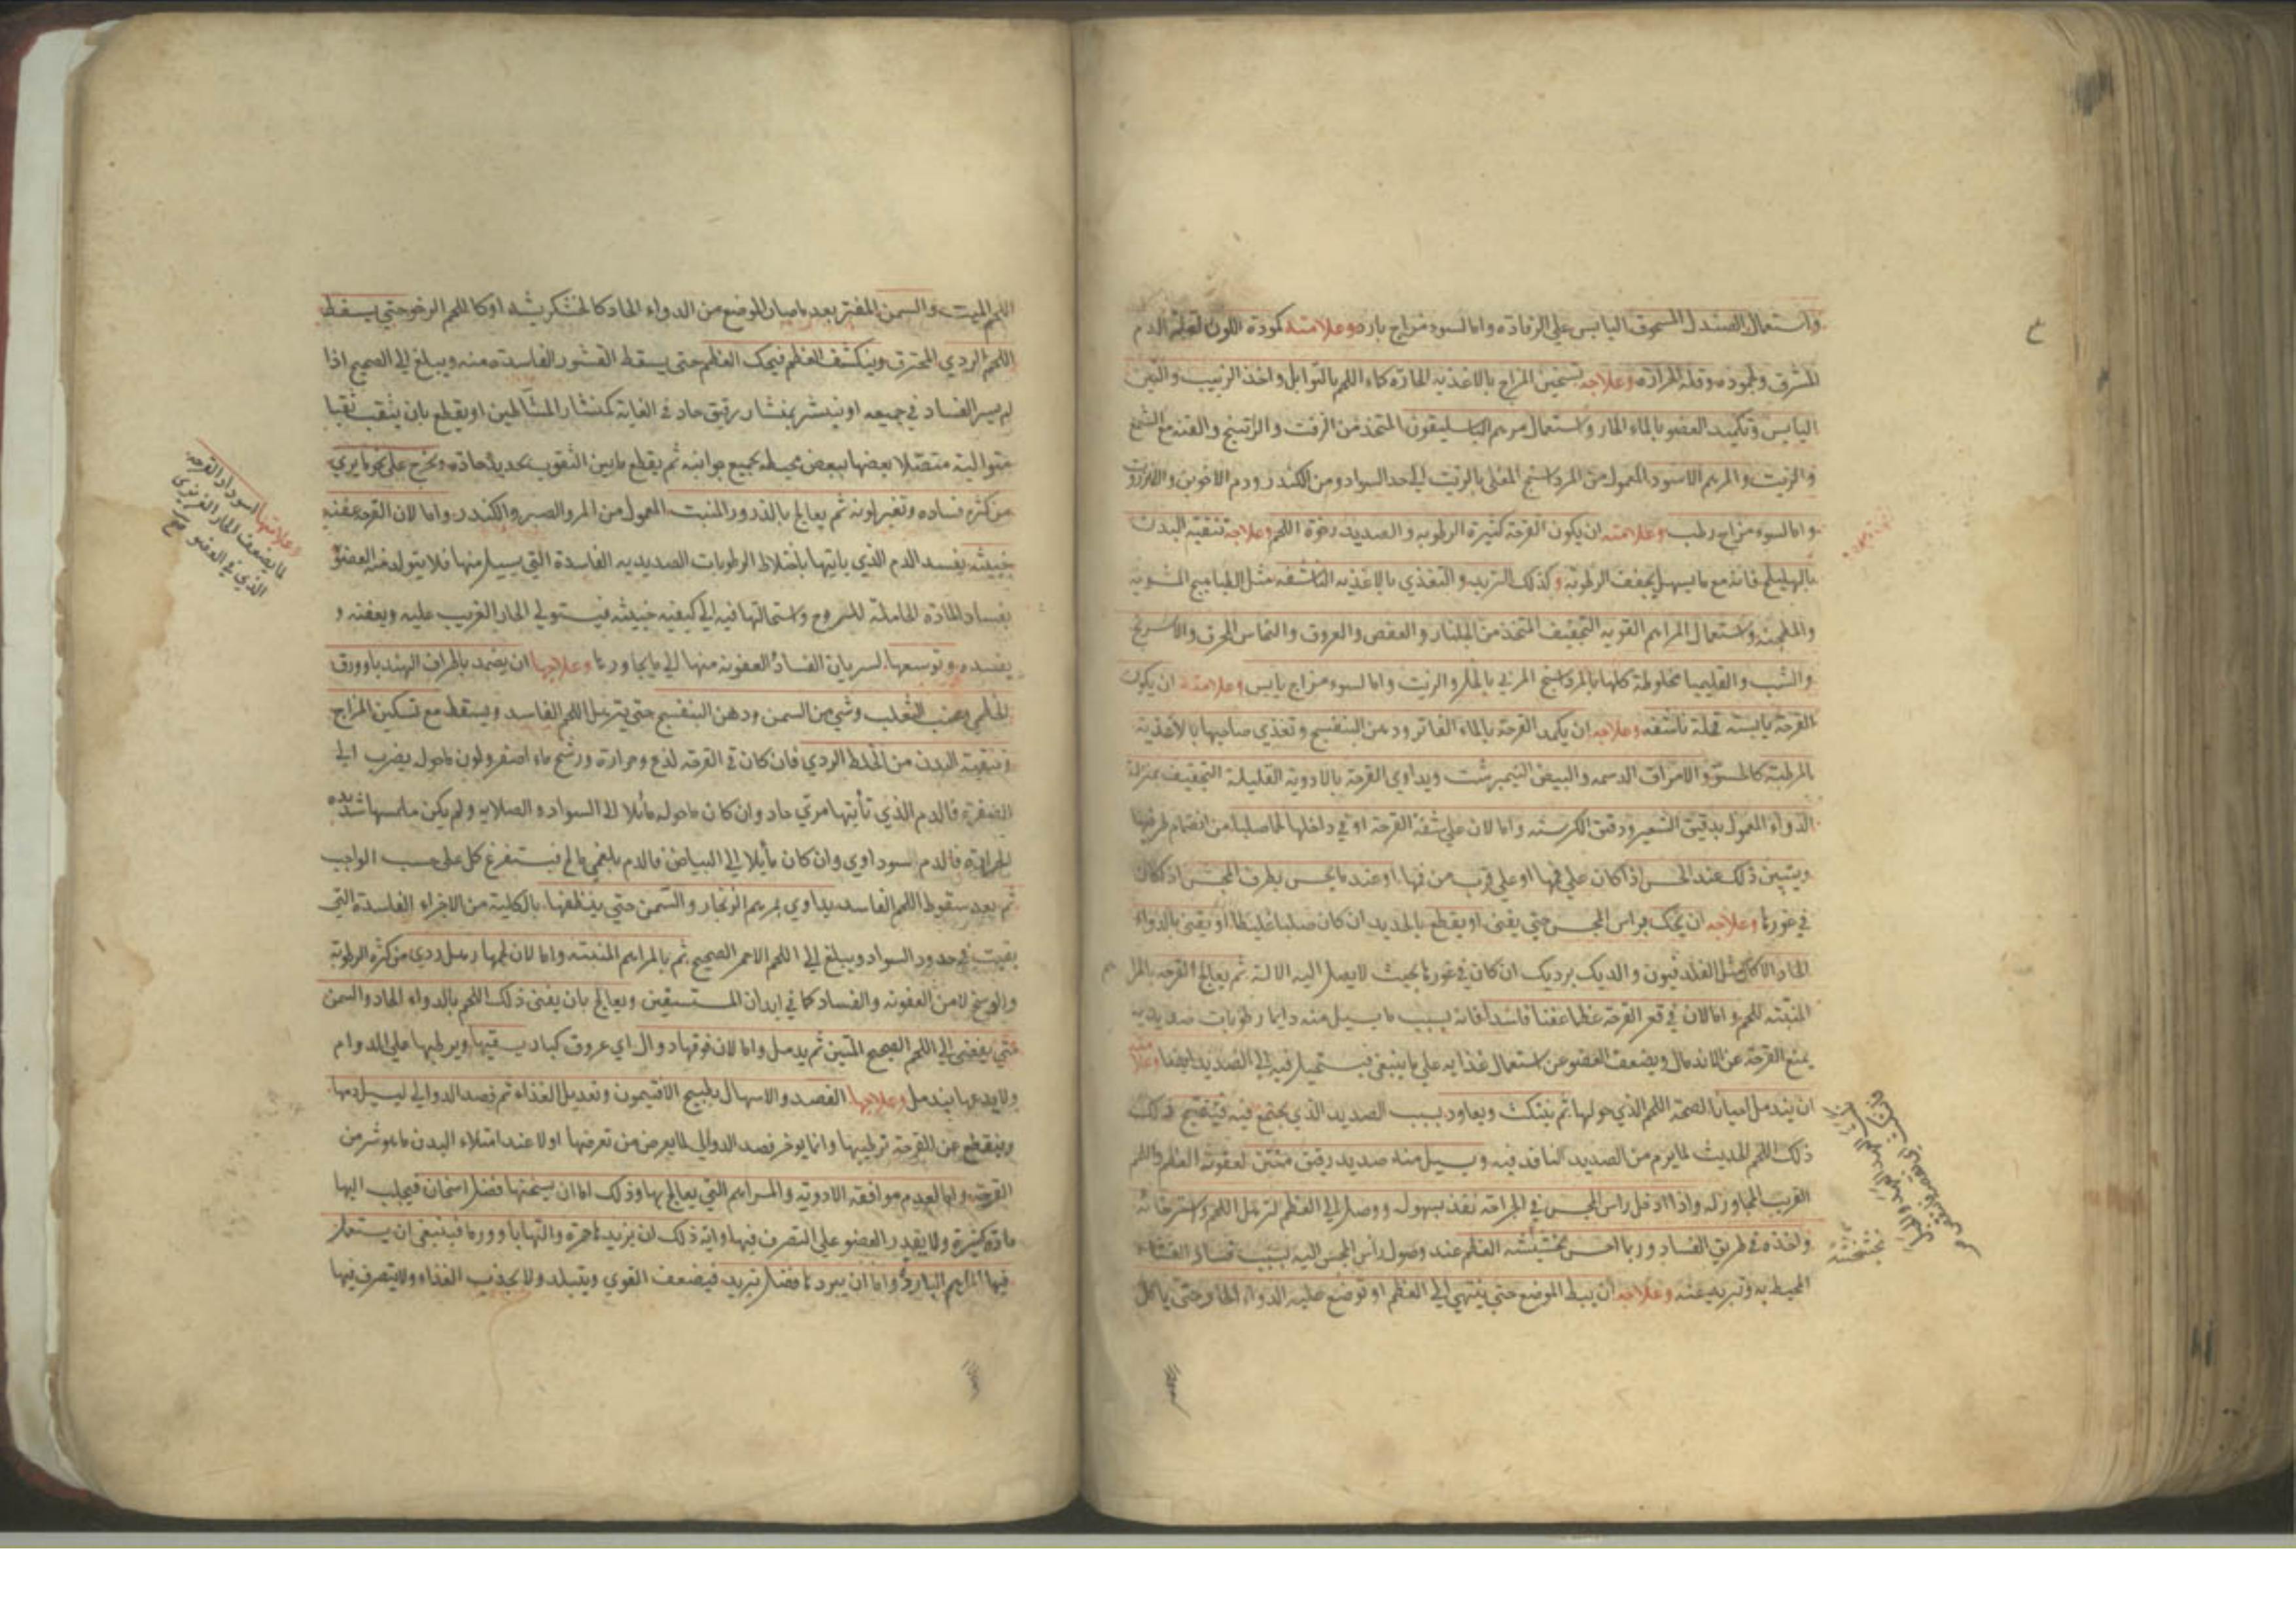 واستعمال الصندل المسحوق اليابس على الرفادة واما لسوء مزاج بارد وعلامته كمودة اللون لقلة الدم
المشرق ولجموده وقلة الحرارة وعلاجه تسخين المزاج بالاغذيه الحارة كماء اللحم بالتوابل واخذ الزبيب والتين
اليابس وتكميد العضو بالماء الحار واستعمال مرهم الباسليقون المتخذ من الزفت والراتينج والقنه مع الشمع
والزيت والمرهم الاسود المعمول من المرداسنج المغلى بالزيت الي حد السواد ومن الكندر ودم الاخوين والانزروت
واما لسوء مزاج رطب وعلامته ان يكون القرحة كثيرة الرطوبه والصديد رخوة اللحم وعلاجه تنقية البدن
بالهليلج فانه مع ما يسهل يجفف الرطوبه وكذلك التربد والتغذي بالاغذيه الناشفه مثل الطياهيج المشويه
والمطجنه واستعمال المراهم القويه التجفيف المتخذ من الجلنار والعفص والعروق والنحاس المحرق والاسرنج
والشب والقليميا مخلوطة كلها بالمرداسنج المربي بالخل والزيت واما لسوء مزاج يابس وعلامته ان يكون
القرحة يابسته قحلة ناشفه وعلاجه ان يكمد القرحة بالماء الفاتر ودهن البنفسج وتغذي صاحبها بالاغذيه
المرطبة والامراق الدسمه والبيض النيمبرشت ويداوي القرحة بالادوية القليلة التجفيف بمنزلة
الدواء المعمول بدقيق الشعير ودقيق الكرسنه واما لان علي شفة القرحة او في داخلها لحما صلبا من انضمام طرفيها
ويتبين ذلك عند الحس اذا كان علي فمها او علي قرب من فمها او عند ما يحس بطرف المجس اذ كان
في غورها وعلاجه ان يحك براس المجس حتي يفنى او يقطع بالحديد ان كان صلبا غليظا او يفنى بالدواء
الحاد الاكال مثل الفلدفيون والديك برديك ان كان في غورها بحيث لا يصل اليه الالة ثم يعالج القرحة بالمراهم
المنبته للحم واما لان في قعر القرحة عظما عفنا فاسدا فانه بسبب ما يسيل منه دايما رطوبات صديديه
يمنع القرحة عن الاندمال ويضعف العضو عن استعمال غذايه علي ما ينبغي فيستحيل فيه الي الصديد ايضا وعلامته
ان يندمل احيانا لصحة اللحم الذي حولها ثم ينتكث ويعاود بسبب الصديد الذي يجتمع فيه فيتفتح
ذلك اللحم الحديث لما يرم من الصديد النافذ فيه ويسيل منه صديد رقيق منتن لعفونة العظم واللحم
القريب المجاور له واذا ادخل راس المجس في الجراحة نفذ بسهولة ووصل الي العظم لترهل اللحم واسترخائه
واخذه في طريق الفساد وربما احس بخشخشة العظم عند وصول راس المجس اليه بسبب فساد الغشاء
المحيط به وتبريه عنه وعلاجه ان يبط الموضع حتي ينتهي الي العظم او توضع عليه الدواء الحاد حتي ياكل
خشخشة
اللحم الميت والسمن المفتر بعد ما صار الموضع من الدواء الحاد كالخشكريشه او كاللحم الرخو حتي يسقط
اللحم الردي المحترق وينكشف العظم فيحك العظم حتى يسقط القشور الفاسدة منه ويبلغ الي الصحيح اذا
لم يسر الفساد في جميعه او ينشر بمنشار رقيق حاد في الغاية كمنشار المشاطين او يقطع بان يثقب ثقبا
متوالية متصلا بعضها ببعض محيطه بجميع جوانبه ثم يقطع ما بين الثقوب بحديدة حادة ويخرج على نحو ما يري
من كثرة فساده وتغير لونه ثم يعالج بالذرور المنبت المعمول من المر والصبر والكندر واما لان القرحة عفنه
خبيثه يفسد الدم الذي ياتيها باختلاط الرطوبات الصديديه الفاسدة التي يسيل منها فلا يتولد منه العضو
بفساد المادة الحاملة للروح واستحالتها فيه الي كيفيه خبيثه فيستولي الحار الغريب عليه ويعفنه و
يفسده وتوسعها لسريان الفساد العفونه منها الي ما يجاورها وعلاجها ان يضمد باطراف الهندبا وورق
الخطمي وعنب الثعلب وشي من السمن ودهن البنفسج حتي يترهل اللحم الفاسد ويسقط مع تسكين المزاج
وتنقية البدن من الخلط الردي فان كان في القرحة لذع وحرارة ورشح ماء اصفر ولون ما حول يضرب الى
الصفرة فالدم الذي تأتيها مري حاد وان كان ما حوله مائلا الى السواد والصلابه ولم يكن ملمسها شديده
الحرارة فالدم سوداوي وان كان مايلا الي البياض فالدم بلغمي مالح فيستفرغ كل على حسب الواجب
ثم بعد سقوط اللحم الفاسد يداوي بمرهم الزنجار والسمن حتي ينظفها بالكلية من الاجزاء الفاسدة التي
بقيت في حدود السواد ويبلغ الي اللحم الاحمر الصحيح ثم بالمراهم المنبته واما لان لحمها رهل ردي من كثرة الرطوبة
والوسخ لا من العفونه والفساد كما في ابدان المستسقين ويعالج بان يفنى ذلك اللحم بالدواء الحاد والسمن
حتي يفضى الى اللحم الصحيح المتين ثم يدمل واما لان فوقها دوال اي عروق كبار يسقيها ويرطبها على الدوام
ولا يدعها يندمل وعلاجها الفصد والاسهال بطبيخ الافتيمون وتعديل الغذاء ثم فصد الدوالي ليسيل دمها
وينقطع عن القرحة ترطيبها وانما يوخر فصد الدوالي لما يعرض من تعرضها اولا عند امتلاء البدن ما هو شر من
القرحة واما لعدم موافقة الادويه والمراهم التي يعالج بها وذلك اما ان يسخنها فضل اسخان فيجلب اليها
مادة كثيرة ولا يقدر العضو على التصرف فيها واية ذلك ان يزيدها حمرة والتهابا وورما فينبغي ان يستعمل
فيها المراهم الباردة واما ان يبردها فضل تبريد فيضعف القوي ويتبلد ولا يجذب الغذاء ولا يتصرف فيها
وعلامتها اسوداد القرحة
لما يضعف الحار الغريزي
الذي في العضو